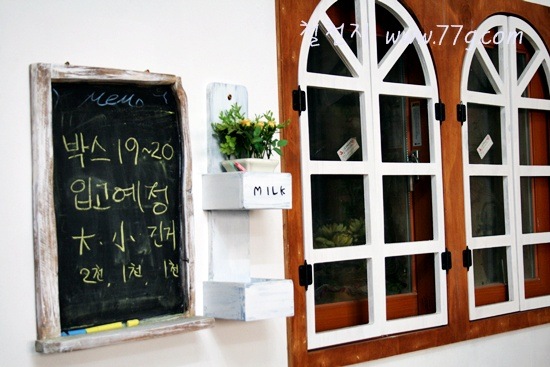 철천지 www.77g.com
Menu
박스 19~20
입고예정
大. 小. 긴거
2천, 1천, 1천
MILK